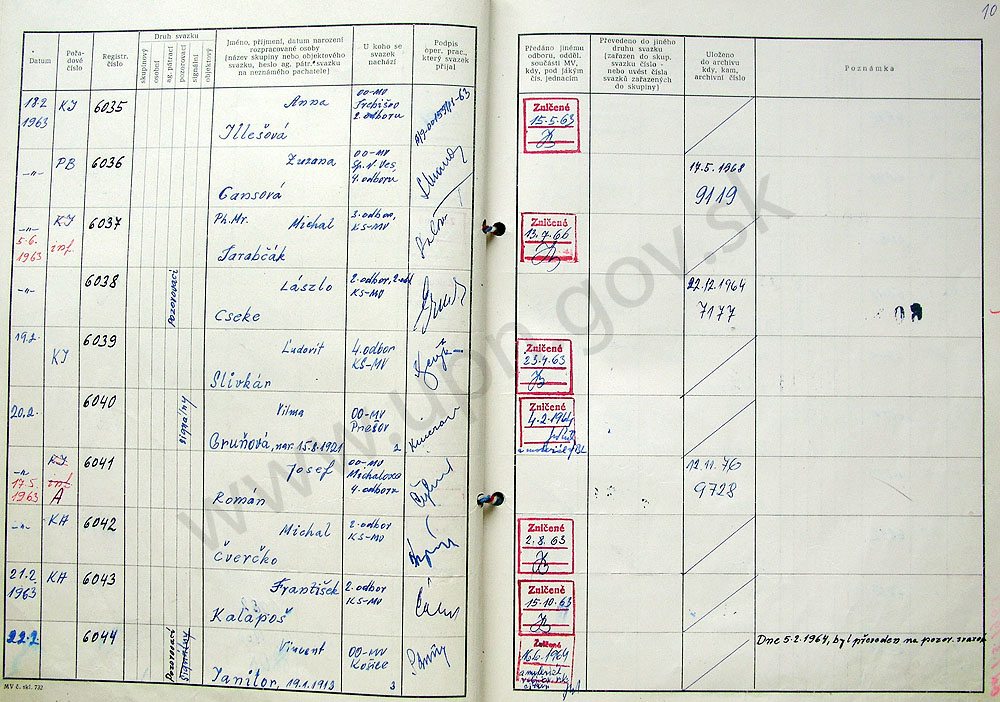 10
Datum
Pořa-
dové
číslo
Registr.
číslo
Druh svazku
skupinový
osobní
ag. pátrací
pozorovací
signální
objektový
Jméno, příjmení, datum narození
rozpracované osoby
(název skupiny nebo objektového
svazku, heslo ag. pátr. svazku
na neznámého pachatele)
U koho se
svazek
nachází
Podpis
oper. prac.,
který svazek
přijal
Předáno jinému
odboru, oděl.
součásti MV,
kdy, pod jakým
čís. jednacím
Převedeno do jiného
druhu svazku
(zařazen do skup.
svazku číslo -
nebo uvést čísla
svazků zařazených
do skupiny)
Uloženo
do archivu
kdy, kam,
archivní číslo
Poznámka
18.2
1963
KI
6035
Anna
Illešová
OO-MV
Trebišov
2. odboru
Zničené
15.5.63
-"-
PB
6036
Zuzana
Gansová
OO-MV
Sp. N. Ves
4. odború
17.5.1968
9119
-"-
5.6.
1963
KI
inf.
6037
Ph.Mr.
Michal
Tarabčák
3. odbor,
KS-MV
Zničené
13.7.66
-"-
6038
pozorovací
László
Cseke
2. odbor, 2. odd
KS-MV
22.12.1964
7177
19.2.
KI
6039
Ľudovít
Slivkár
4. odbor
KS-MV
Zničené
23.4.63
20.2.
6040
signálny
Vilma
Gruňová, nar. 15.8.1921
OO-MV
Prešov
2
Zničené
4.2.1964
-"-
17.5.
1963
KI
inf.
A
6041
Josef
Román
OO-MV
Michalovce
4. odboru
12.11.76
9728
-"-
KA
6042
Michal
Čverčko
2. odbor
KS-MV
Zničené
2.8.63
21.2.
1963
KA
6043
František
Kalapoš
2. odbor
KS-MV
Zničené
15.10.63
22.2
6044
Pozorovací
signálny
Vincent
Janitor, 19.1.1913
OO-MV
Košice
3
Zničené
16.6.1964
Dne 5.2.1964, byl převeden na pozor. svazek
MV č. skl. 732
www.upn.gov.sk